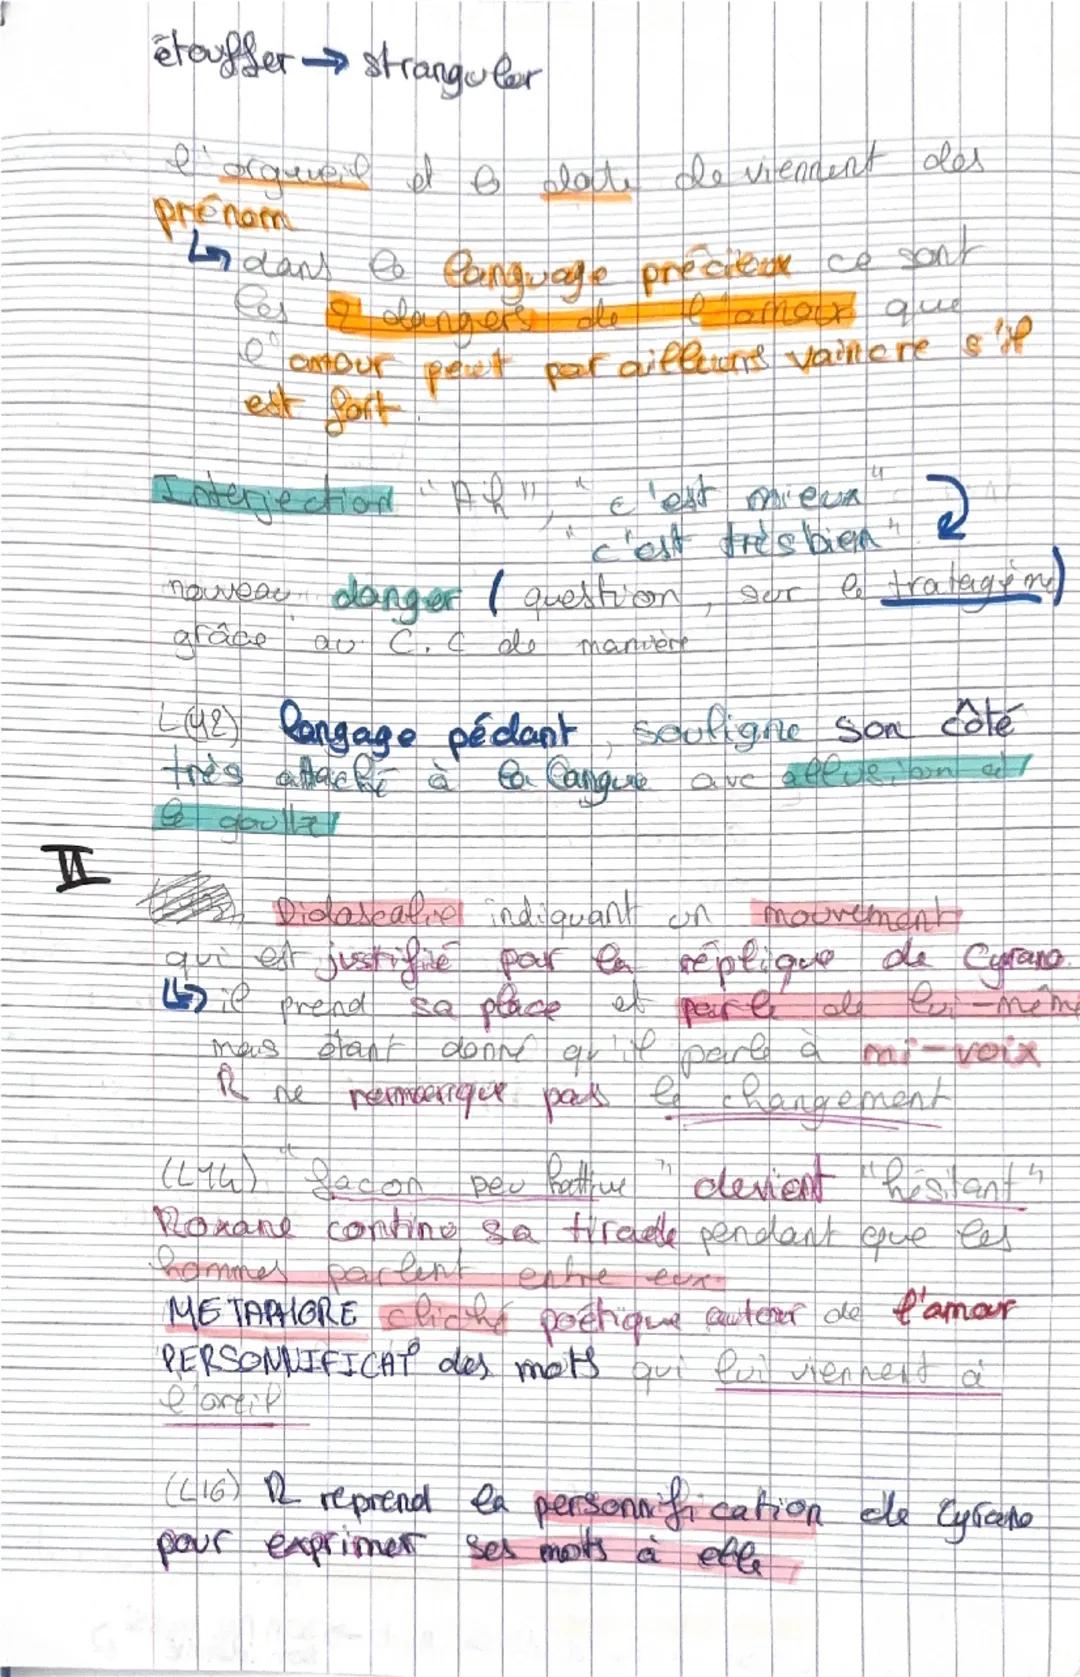 étouffer → stranguler
l'orgueil et le doute deviennent des
prénom
↳ dans le language précieux ce sont
les 2 dangers de l'amour que
l'amour peut par ailleurs vaincre s'il
est fort.
Interjection "Ah", "c'est mieux"
"c'est très bien"
nouveau danger (question, sur le stratagème)
grâce au C.C de manière
L(12) langage pédant, souligne son côté
très attaché à la langue avc allusion à
le
II
Didascalie indiquant un mouvement
qui est justifié par la réplique de Cyrano.
↳ il prend sa place et parle de lui-même
mais étant donné qu'il parle à mi-voix
R ne remarque pas le changement
(L14) "façon peu hative" devient "hésitant"
Roxane contine sa tirade pendant que les
hommes parlent entre eux.
METAPHORE cliché poétique autour de l'amour
PERSONNIFICAT° des mots qui lui viennent à
(L16) R reprend la personnification de Cyrano
pour exprimer ses mots à elle